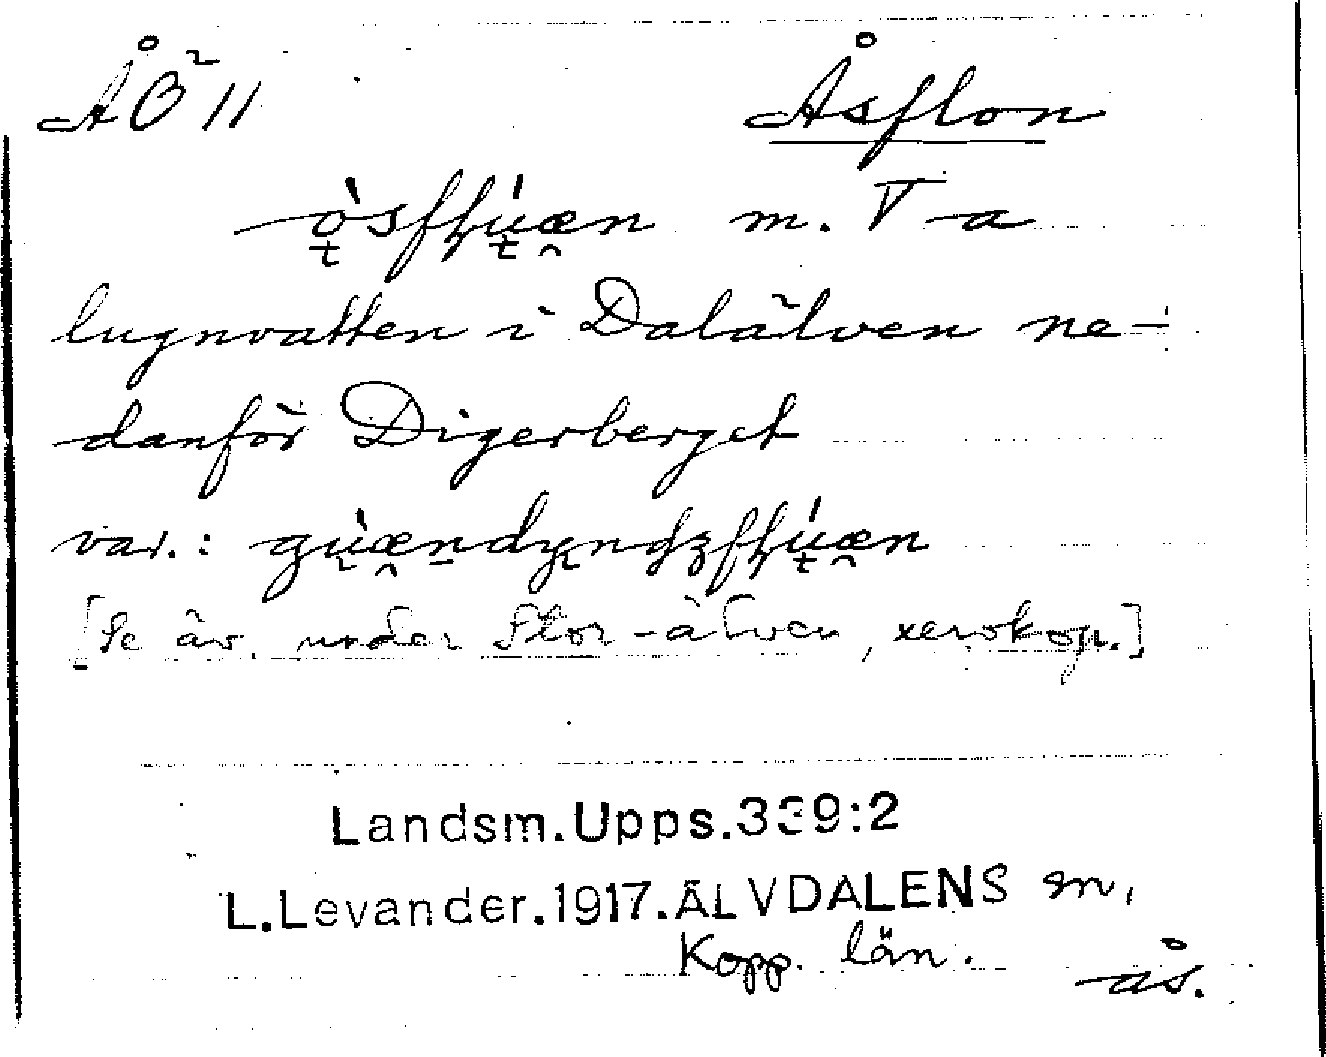 Åsflon
m. V a
lugnvatten i Dalälven ne-
danför Digerberget
var.:
[Se äv. under Stor-älven, xerokop.]
Landsm.Upps.339:2
L.Levander.1917.ÄLVDALENS sn,
Kopp. län.
ås.